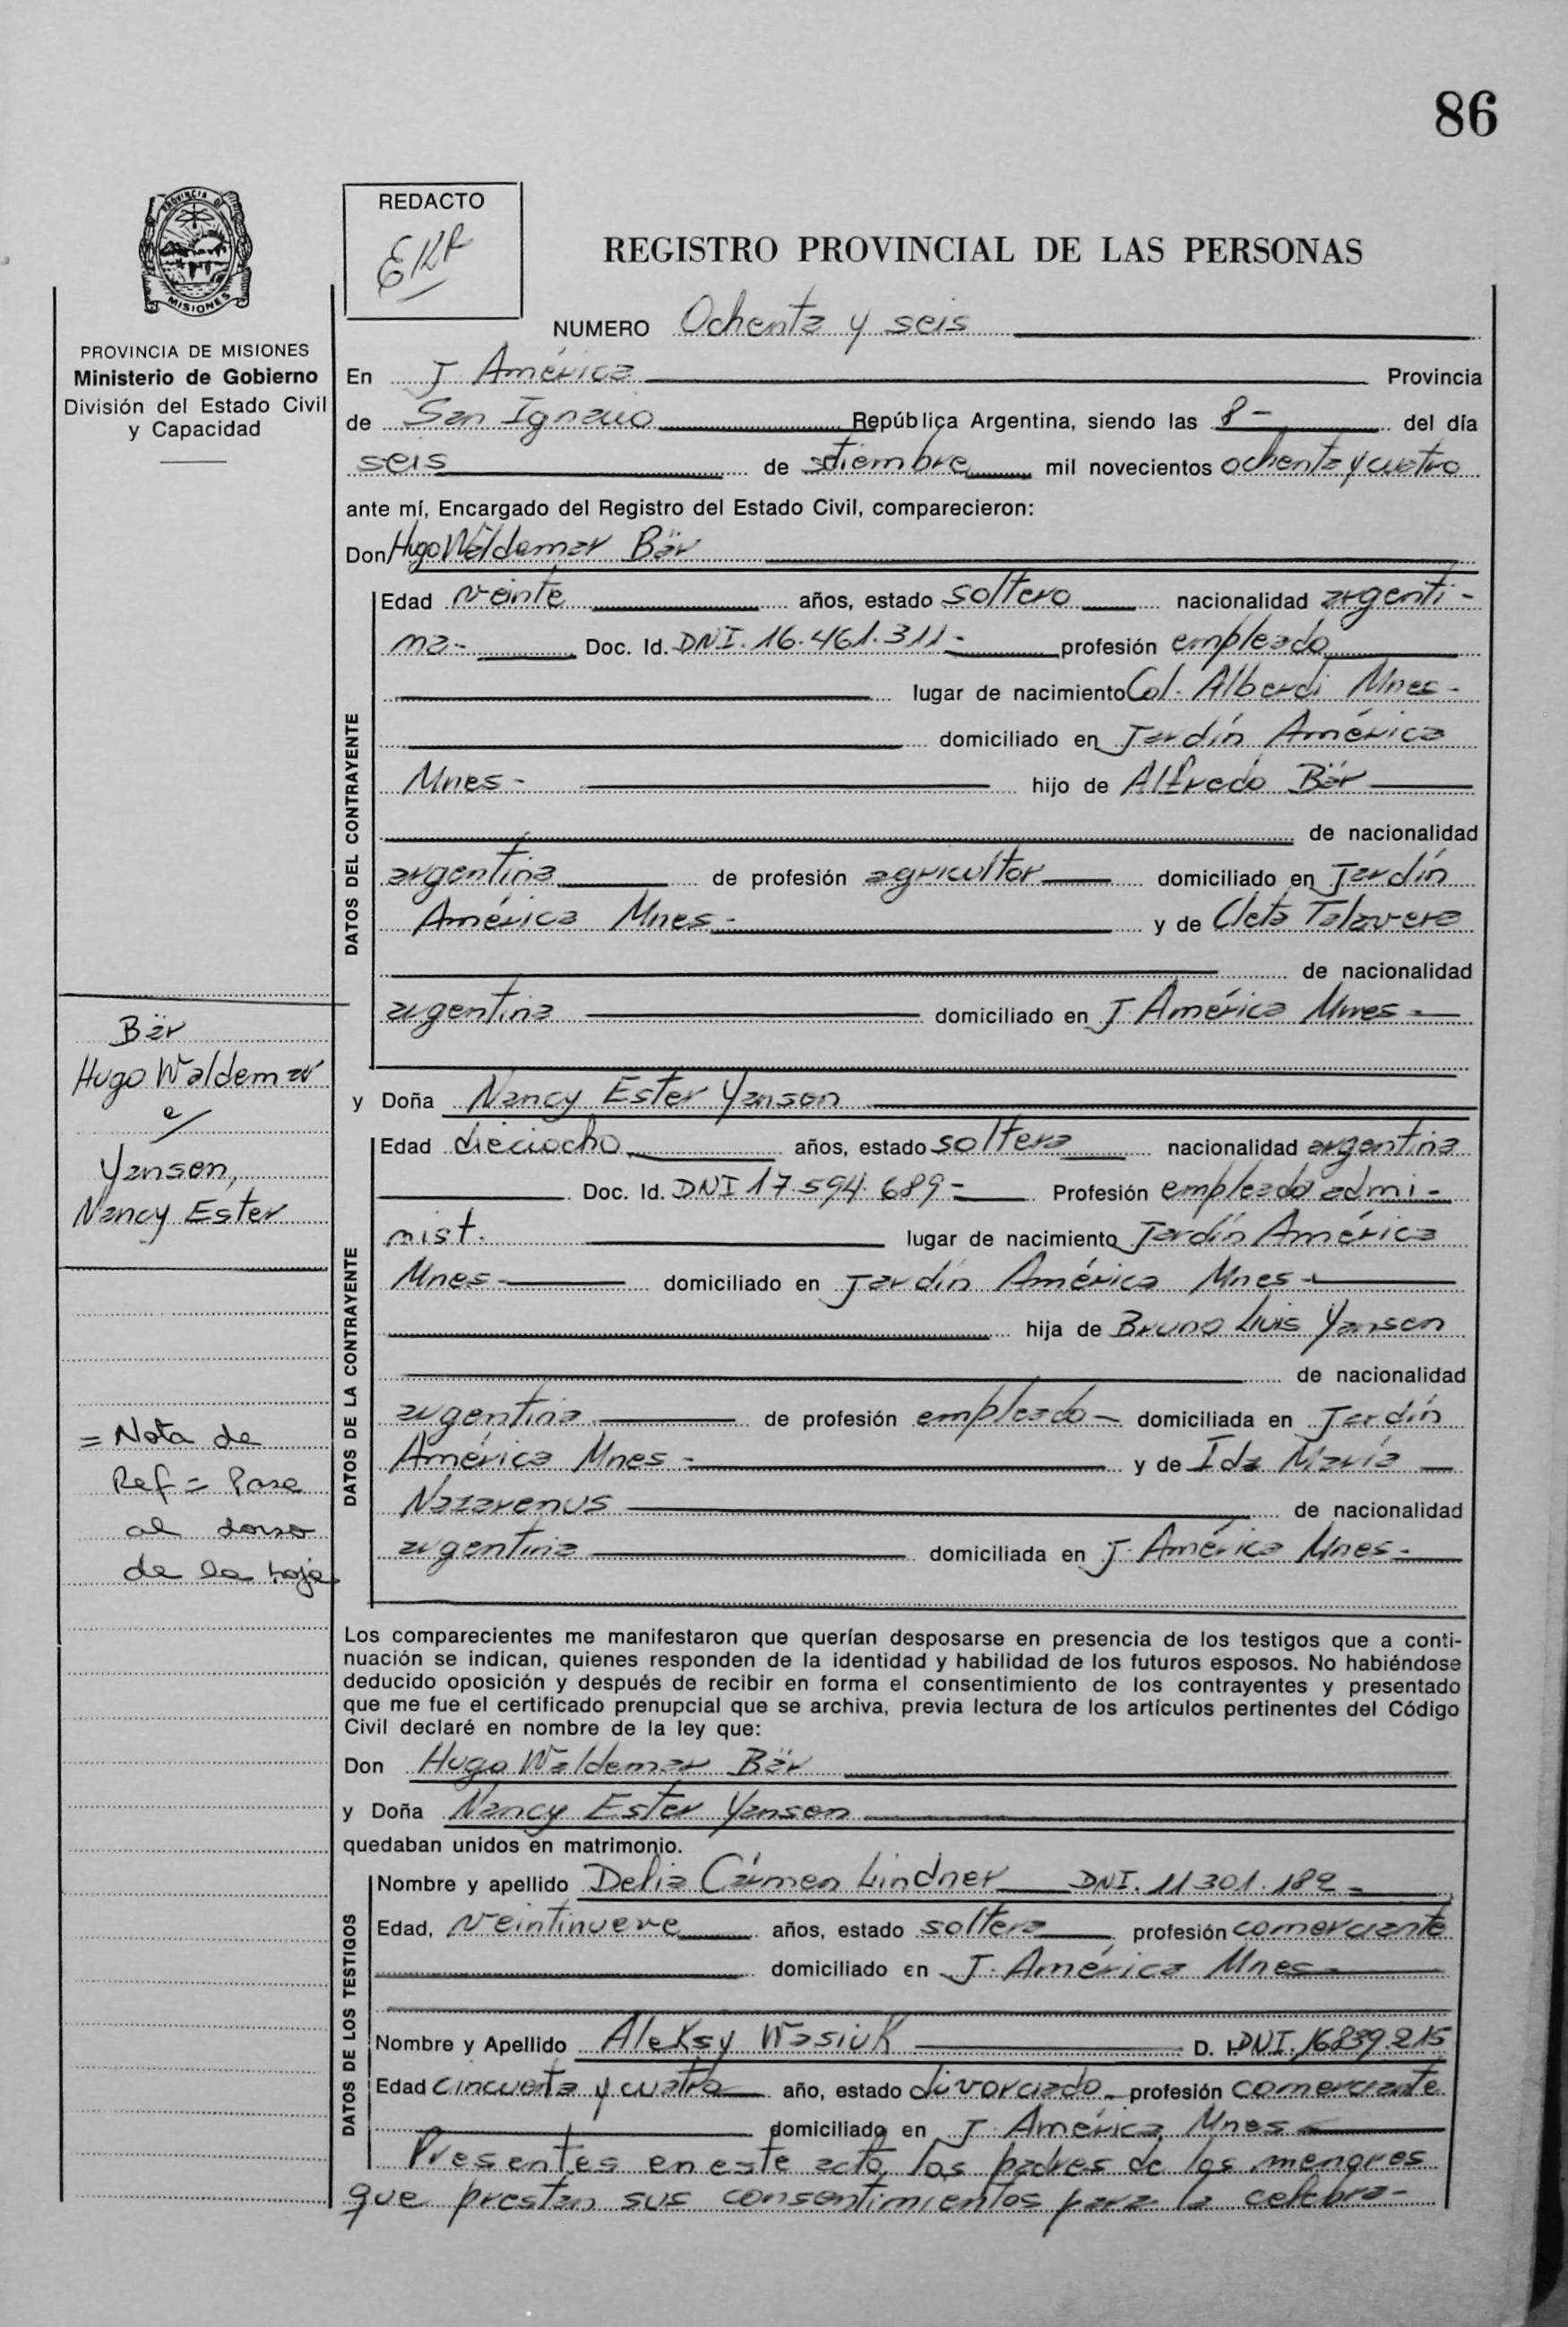 86
PROVINCIA DE
MISIONES
PROVINCIA DE MISIONES
Ministerio de Gobierno
División del Estado Civil
y Capacidad
REDACTO
REGISTRO PROVINCIAL DE LAS PERSONAS
NUMERO Ochenta y seis
En J. América Provincia
de San Ignacio República Argentina, siendo las 8- del día
seis de stiembre mil novecientos ochenta y cuatro
ante mí, Encargado del Registro del Estado Civil, comparecieron:
Don Hugo Waldemar Bär
Edad veinte años, estado soltero nacionalidad argenti-
na- Doc. Id. DNI. 16.461.311- profesión empleado
lugar de nacimiento Col. Alberdi Mnes-
domiciliado en Jardín América
Mnes- hijo de Alfredo Bär
de nacionalidad
argentina de profesión agricultor domiciliado en Jardín
América Mnes- y de Cleta Talavera
de nacionalidad
argentina domiciliado en J. América Mnes-
DATOS DEL CONTRAYENTE
Bär
Hugo Waldemar
c/
Yansen,
Nancy Ester
y Doña Nancy Ester Yansen
Edad dieciocho años, estado soltera nacionalidad argentina
Doc. Id. DNI 17.594.689- Profesión empleado admi-
nist. lugar de nacimiento Jardín América
Mnes- domiciliado en Jardín América Mnes-
hija de Bruno Luis Yansen
de nacionalidad
argentina de profesión empleado- domiciliada en Jardín
América Mnes- y de Ida María
Nazarenus de nacionalidad
argentina domiciliada en J. América Mnes-
DATOS DE LA CONTRAYENTE
= Nota de
Ref = Pase
al dorso
de la hoja
Los comparecientes me manifestaron que querían desposarse en presencia de los testigos que a conti-
nuación se indican, quienes responden de la identidad y habilidad de los futuros esposos. No habiéndose
deducido oposición y después de recibir en forma el consentimiento de los contrayentes y presentado
que me fue el certificado prenupcial que se archiva, previa lectura de los artículos pertinentes del Código
Civil declaré en nombre de la ley que:
Don Hugo Waldemar Bär
y Doña Nancy Ester Yansen
quedaban unidos en matrimonio.
Nombre y apellido Delia Cármen Lindner DNI. 11.301.182-
Edad, veintinueve años, estado soltera profesión comerciante
domiciliado en J. América Mnes-
Nombre y Apellido Aleksy Wasiuk D. I. DNI. 16.839.215
Edad cincuenta y cuatro año, estado divorciado- profesión comerciante
domiciliado en J. América Mnes-
DATOS DE LOS TESTIGOS
Presentes en este acto los padres de los menores
que prestan sus consentimientos para la celebra-